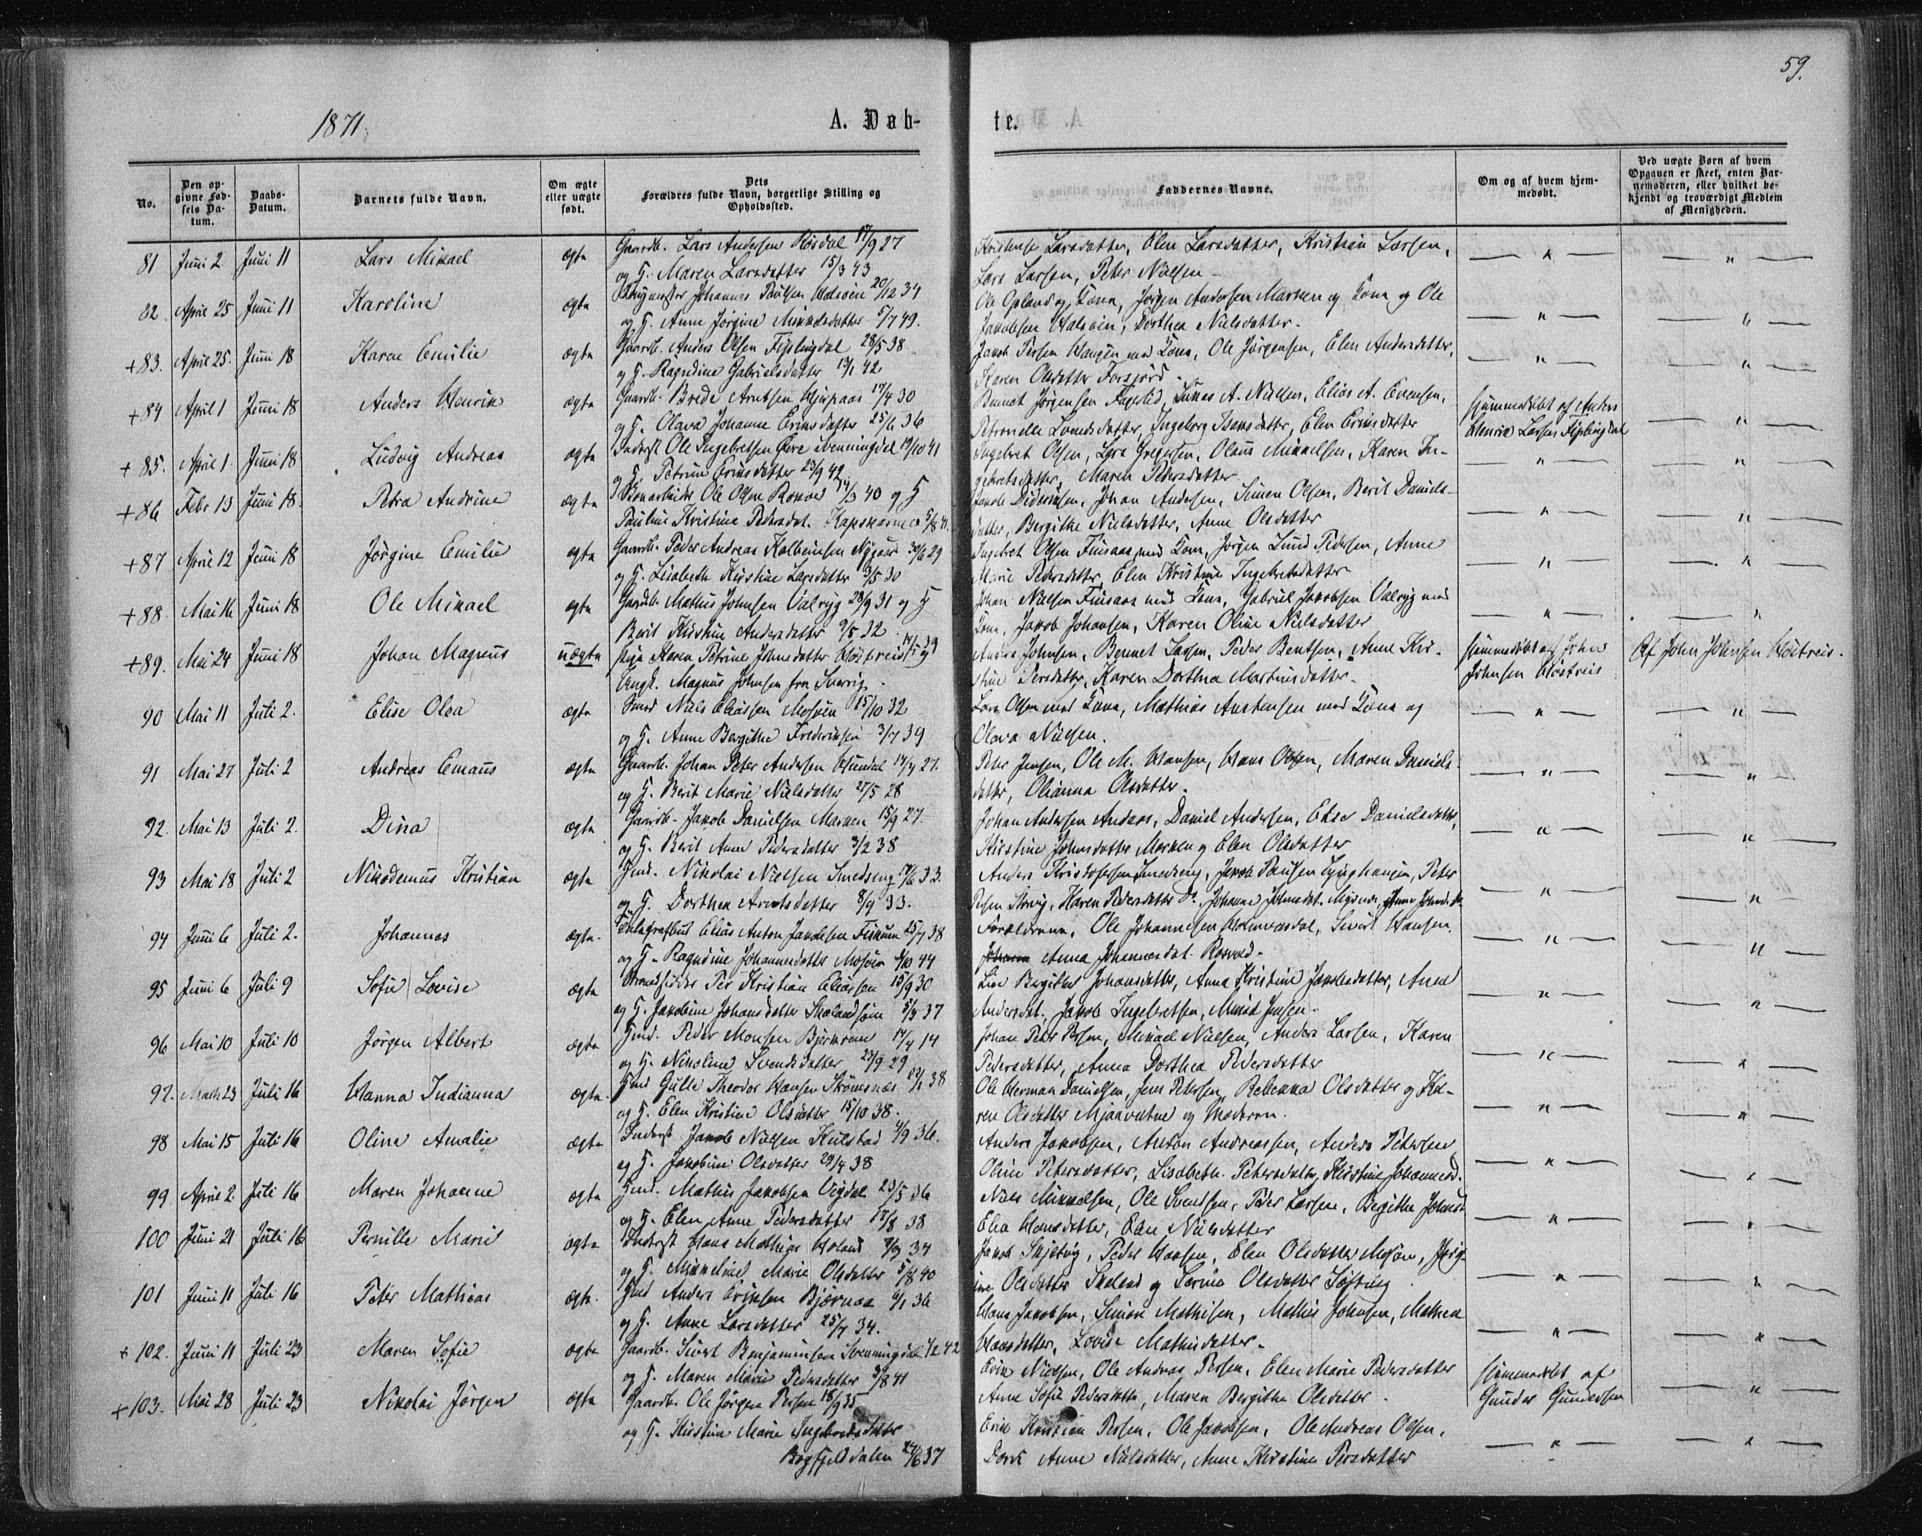 59.
1871.
A. Døb-
te.
No.
Den opgivne Fødsels Datum.
Daabs-Datum.
Barnets fulde Navn.
Om ægte eller uægte født.
Dets Forældres fulde Navn, borgerlige Stilling og Opholdssted.
Faddernes Navne.
Om og af hvem hjemmedøbt.
Ved uægte Børn af hvem Opgaven er skeet, enten Barnemoderen, eller hvilket bekjendt og troværdigt Medlem af Menigheden.
81 Juni 2 Juni 11 Lars Mikael ægte Gaardb. Lars Andersen Røsdal 17/9 27
og H. Maren Larsdatter 15/3 43
Larsdatter, Olea Larsdatter, Kristian Larsen,
Lars Larsen, Peter Nielsen
82. April 25 Juni 11 Karoline ægte Johannes 20/12 34
og H. Anne Jørgine Mikkelsdatter 5/7 49.
Ole og Kona, Jørgen Andersen Marken og Kona og Ole
Jakobsen Halsøien, Dorthea Nielsdatter.
+83. April 25. Juni 18 Karen Emilie ægte Gaardb. Anders Olsen Fiplingdal 28/5 38.
og H. Ragndine Gabrielsdatter 13/1 42
Jakob Persen med Kona, Ole Jørgensen, Elen Andersdatter,
Karen Olsdatter Forsjord
+84 April 1 Juni 18 Anders Henrik ægte Gaardb. Brede Arntsen 17/4 30
og H. Olava Johanne Eriksdatter 25/6 36
Jørgensen Fagerlid, A. Nielsen, Elias A. Evensen,
Petronelle Larsdatter, Ingeborg Hansdatter, Elen Eriksdatter
hjemmedøbt af Anders
Henrik Larsen Fiplingdal
+85. April 1. Juni 18 Ludvig Andreas ægte Inderst Ole Ingebretsen Øvre Svenningdal 19/10 41
H. Petrine Eriksdatter 23/9 42
Ingebret Olsen, Lars Gregersen, Olaus Mikkelsen, Karen In-
gebretsdatter, Maren Pedersdatter
+86 Febr 13 Juni 18. Petra Andrine ægte Ole Olsen Rosvol 14/3 40 og H
Pauline Kristine Pedersdat. 5/8 41.
Jakob Didriksen, Johan Andersen, Simen Olsen, Berit Daniels-
datter, Bergithe Nielsdatter, Anne Olsdatter
+87 April 12 Juni 18 Jørgine Emilie ægte Gaardb. Peder Andreas Kolbeinsen 30/6 29
og H. Lisabeth Kristine Larsdatter 13/5 30
Ingebret Olsen Finsaas med Kona, Jørgen Lund Pedersen, Anne
Marie Pedersdatter, Elen Kristine Ingebretsdatter
+88. Mai 16 Juni 18 Ole Mikael ægte Gaardb. Mathias Johnsen Valryg 28/9 31 og H
Berit Kristine Andersdatter 9/5 32
Johan Nielsen Finsaas med Kona, Gabriel Jakobsen Valryg med
Kona, Jakob Johansen, Karen Oline Nielsdatter
+89. Mai 24 Juni 18 Johan Magnus uægte Pige Karen Petrine Johnsdatter
Ungk. Magnus Johnsen fra Sverrig
Johnsen, Bennet Larsen, Peder Bentsen, Anne Kri-
stine Persdatter, Karen Dorthea Martinsdatter.
hjemmedøbt af John
Johnsen
Af John Johnsen
90 Mai 11 Juli 2. Elise Olea ægte Smed Niels Eliassen Mosøen 15/10 32
og H. Anne Bergithe Frederiksen 3/7 39
Lars Olsen med Kona, Mathias Austensen med Kona og
Olava Nielsen.
91 Mai 27 Juli 2 Andreas Emaus ægte Gaardb. Johan Peter Andersen Hundal 14/7 27.
og H. Berit Marie Nielsdatter 27/5 28
Peter Jensen, Ole M. Hansen, Hans Olsen, Maren Daniels-
datter, Olianna Olsdatter.
92. Mai 13 Juli 2. Dina ægte Gaardb. Jakob Danielsen Marken 15/9 27.
og H. Berit Anne Pedersdatter 3/2 38
Johan Andersen Andaas, Daniel Andersen, Elise Danielsdatter,
Kristine Johnsdatter Marken og Elen Olsdatter
93 Mai 18 Juli 2 Nikodemus Kristian ægte Ind. Nikolai Nielsen Smedseng 17/6 33.
og H. Dorthea Arntsdatter 8/9 33.
Anders Kristofersen Smedseng, Jakob Paulsen Ljunghaugen, Peter
94 Juni 6 Juli 2. Johannes ægte. Telegrafbud Elias Anton Jakobsen Fiskum 25/7 38
og H. Ragndine Johannesdatter Mosøen 4/10 44
Forældrene, Ole Johannesen Holmvasdal, Sivert Hansen.
Anna Johannesdat. Rosvold.
95 Juni 6 Juli 9 Sofie Lovise ægte Per Kristian Eliassen 15/9 30
og H. Jakobine Johansdatter 5/3 37
Bergithe Johansdatter, Anna Kristine Jakobsdatter, Anne
Andersdat., Jakob Ingebretsen, Jensen
96 Mai 10 Juli 10 Jørgen Albert ægte Ind. Peder Monsen 17/4 14
og H. Nikoline Svendsdatter 23/9 29
Johan Peter Persen, Mikael Nielsen, Anders Larsen, Karen
Pedersdatter, Anna Dorthea Pedersdatter
97. Marts 23 Juli 16 Hanna Indianna ægte. Ind Gulle Theodor Hansen Strømsnæs 38
og H. Elen Kristine Olsdatter 15/10 38.
Ole Herman Danielsen, Jens Petersen, Rebekka Olsdatter og Ka-
ren Olsdatter Mjaavatne og Moderen.
98 Mai 15 Juli 16 Oline Amalie ægte Inderst Jakob Nielsen Kulstad 4/9 36.
og H. Jakobine Olsdatter 29/4 38
Anders Jakobsen, Anton Andreassen, Anders Petersen
Oline Petersdatter, Lisabeth Petersdatter, Kristine Johannesd.
99 April 2 Juli 16 Maren Johanne ægte Ind. Mathias Jakobsen Vigdal 23/5 36
og H. Elen Anne Pedersdatter 17/8 38
Niels Mikkelsen, Ole Svendsen, Peder Larsen, Bergithe
Elea Hansdatter, Elen Nielsdatter
100 Juni 21 Juli 16 Pernille Marie ægte Inderst Hans Mathias Holand 9/9 34
og H. Mikkeline Marie Olsdatter 5/8 40
Jakob Skjervig, Peder Hansen, Elen Olsdatter Mosøen, Jørg-
ine Olsdatter Skeland og Sarina Olsdatter
101 Juni 11 Juli 16 Peter Mathias ægte. Ind Anders Eriksen Bjørnaa 6/1 36
og H. Anne Larsdatter 25/7 34.
Hans Jakobsen, Simon Mathisen, Mathis Johnsen, Mathea
Hansdatter, Lovise Mathisdatter.
+ 102. Juni 11 Juli 23 Maren Sofie ægte Gaardb. Sivert Benjaminsen Svenningdal 1/2 42
og H. Maren Marie Pedersdatter 3/8 41
Erik Nielsen, Ole Andreas Persen, Elen Marie Pedersdatter
Anne Sofie Pedersdatter, Maren Bergithe Olsdatter.
hjemmedøbt af
Gunder Gundersen
+ 103. Mai 28 Juli 23 Nikolai Jørgen ægte Gaardb. Ole Jørgen Persen 18/9 35
og H. Kristine Marie Ingebretsdatter
Bøgfjeldalen 24/6 37
Erik Kristian Persen, Ole Jakobsen, Ole Andreas Olsen,
Dorth Anne Nielsdatter, Anne Kristine Persdatter